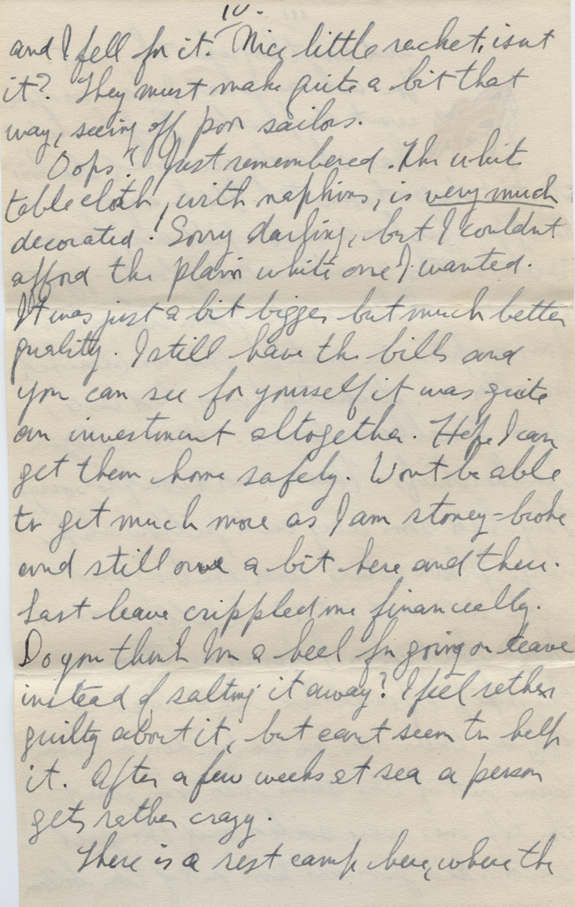 10.
and I fell for it. Nice little racket, isnt
it? They must make quite a bit that
way, seeing off poor sailors.
Oops! Just remembered. The white
tablecloth, with napkins, is very much
decorated! Sorry darling, but I couldnt
afford the plain white one I wanted.
It was just a bit bigger but much better
quality. I still have the bills and
you can see for yourself it was quite
an investment altogether. Hope I can
get them home safely. Wont be able
to get much more as I am stoney-broke
and still owe a bit here and there.
Last leave crippled me financially.
Do you think Im a heel for going on leave
instead of salting it away? I feel rather
guilty about it, but cant seem to help
it. After a few weeks at sea a person
gets rather crazy.
There is a rest camp here, where the